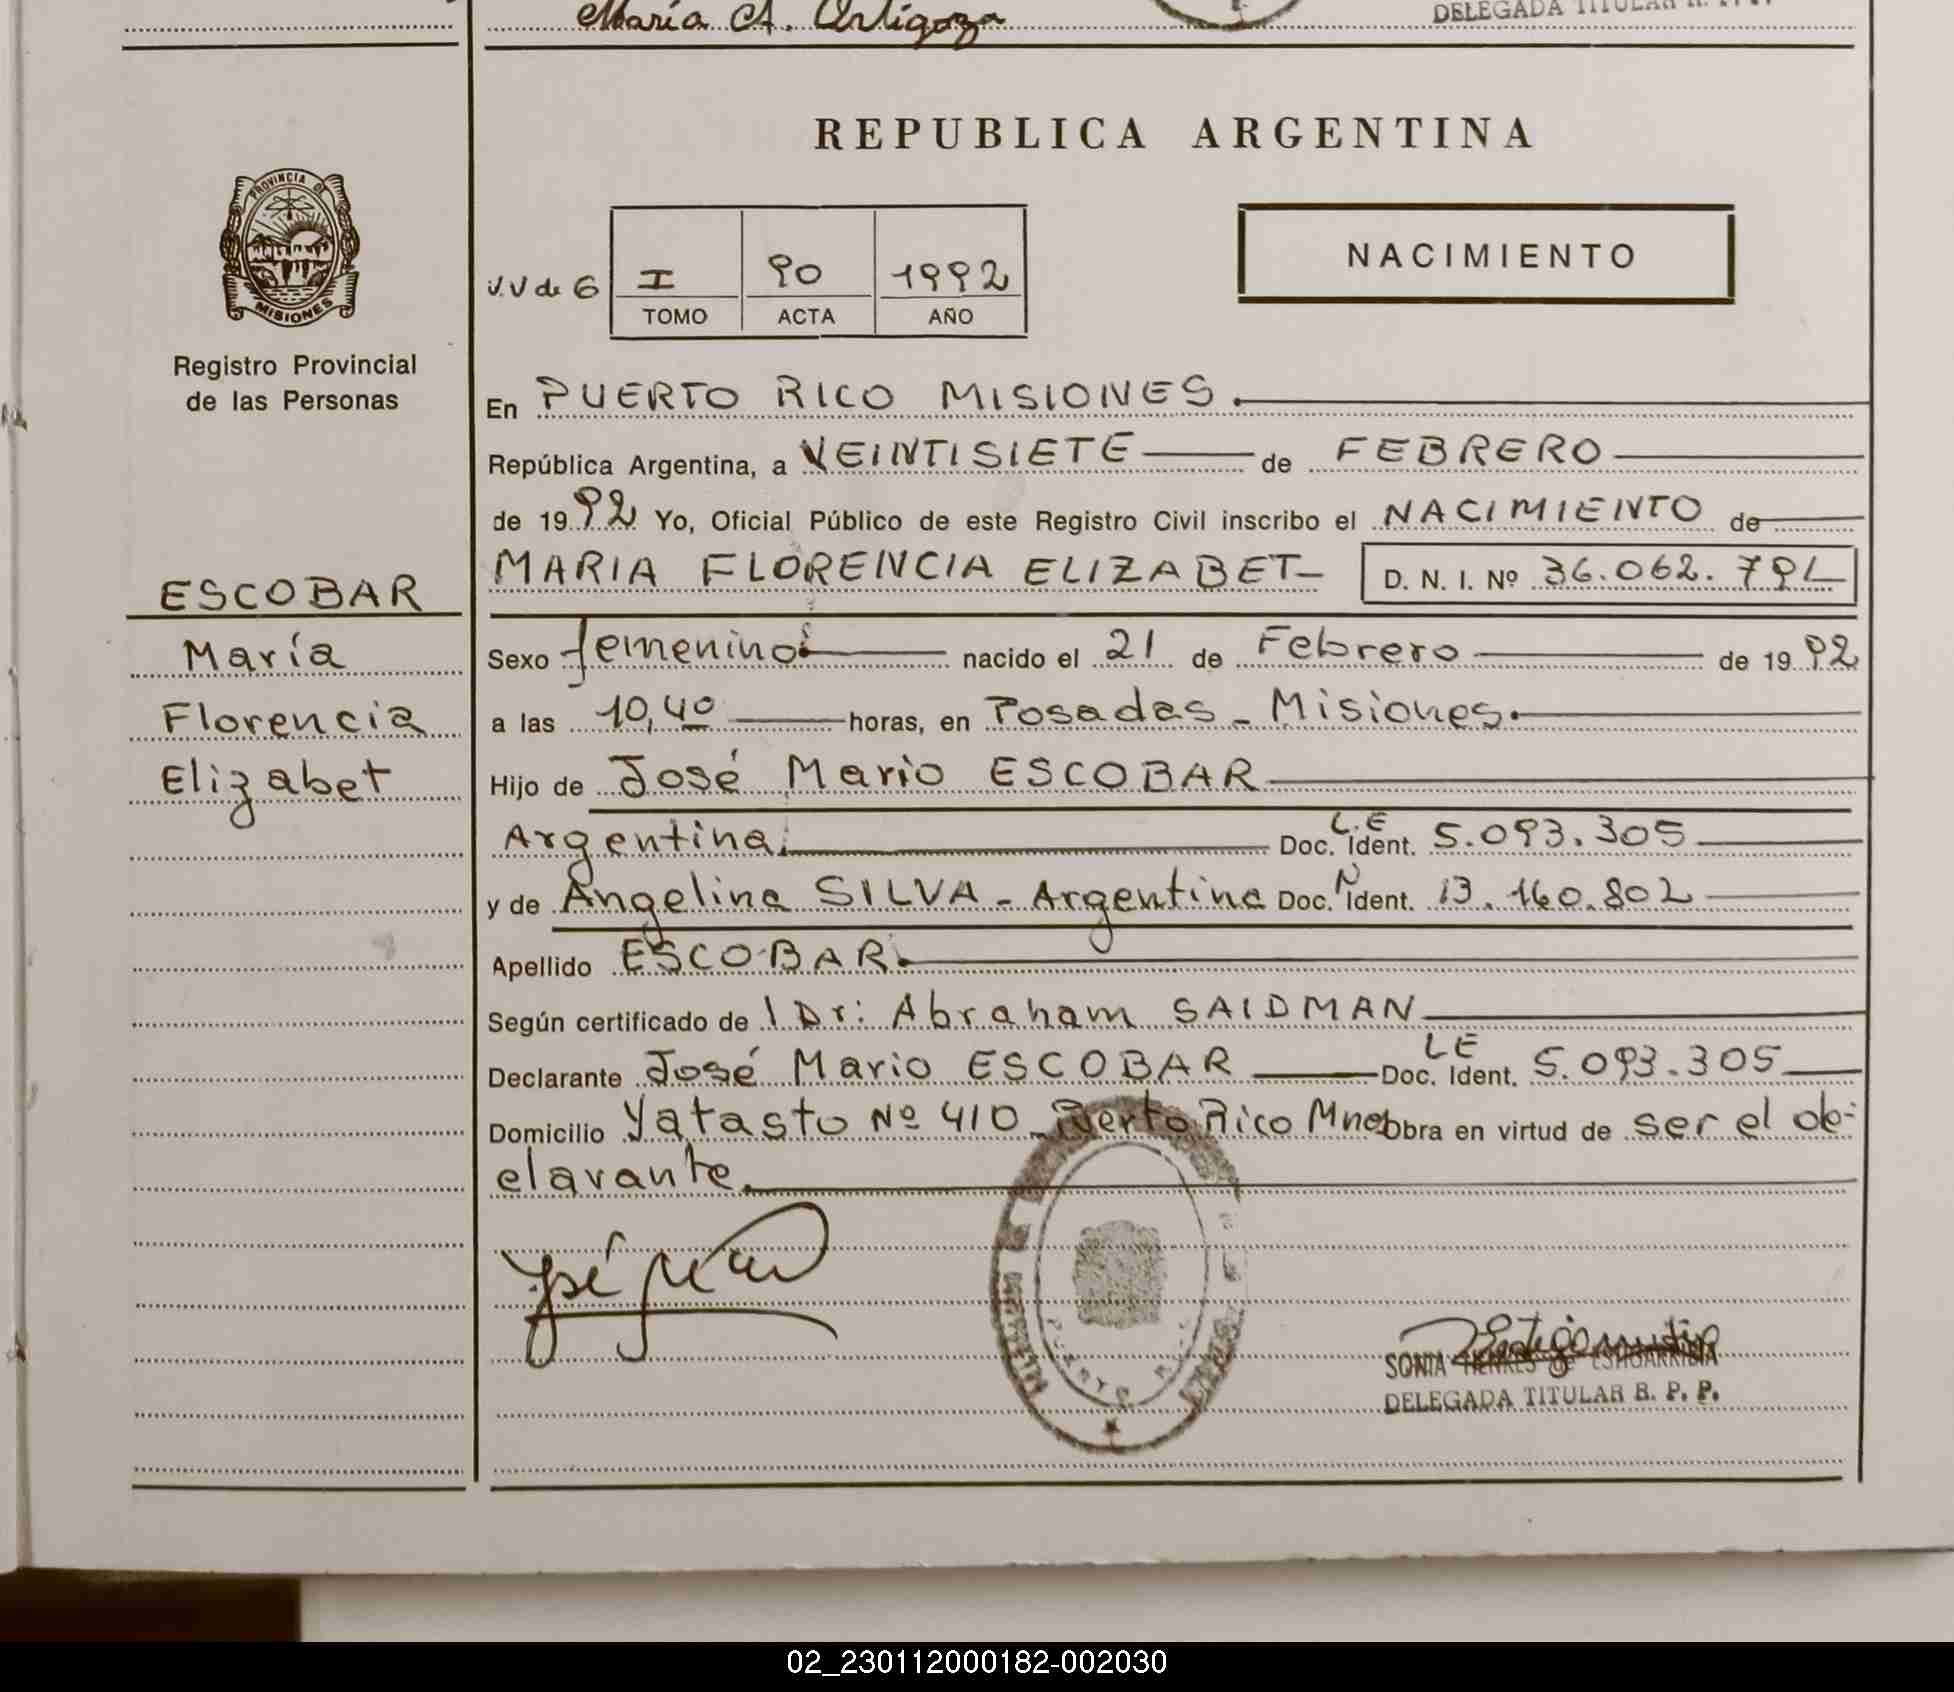 María A. Ortigoza
DELEGADA TITULAR R. P. P.
REPUBLICA ARGENTINA
PROVINCIA DE
MISIONES
Registro Provincial
de las Personas
NACIMIENTO
V.V de 6 I 90 1992
TOMO ACTA AÑO
En PUERTO RICO MISIONES.
República Argentina, a VEINTISIETE de FEBRERO
de 1992 Yo, Oficial Público de este Registro Civil inscribo el NACIMIENTO de
MARIA FLORENCIA ELIZABET D. N. I. Nº 36.062.791
ESCOBAR
María
Florencia
Elizabet
Sexo femenino nacido el 21 de Febrero de 1992
a las 10,40 horas, en Posadas - Misiones.
Hijo de José Mario ESCOBAR
Argentina. Doc. Ident. L.E 5.093.305
y de Angelina SILVA - Argentina Doc. N Ident. 13.160.802
Apellido ESCOBAR.
Según certificado de l Dr: Abraham SAIDMAN
Declarante José Mario ESCOBAR Doc. Ident. LE 5.093.305
Domicilio Yatasto Nº 410 - Puerto Rico Mnes Obra en virtud de ser el de-
clarante.
SONIA
DELEGADA TITULAR R. P. P.
02_230112000182-002030